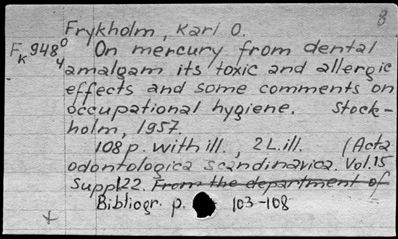 8
Frykholm, Karl O.
Fk 948 0 4 On mercury from dental
amalgam its toxic and allergic
effects and some comments on
occupational hygiene. Stock-
holm, 1957.
108 p. with ill., 2 L. ill. (Acta
odontologica scandinavica. Vol. 15
Suppl 22. From the department of
Bibliogr. p. 103-108